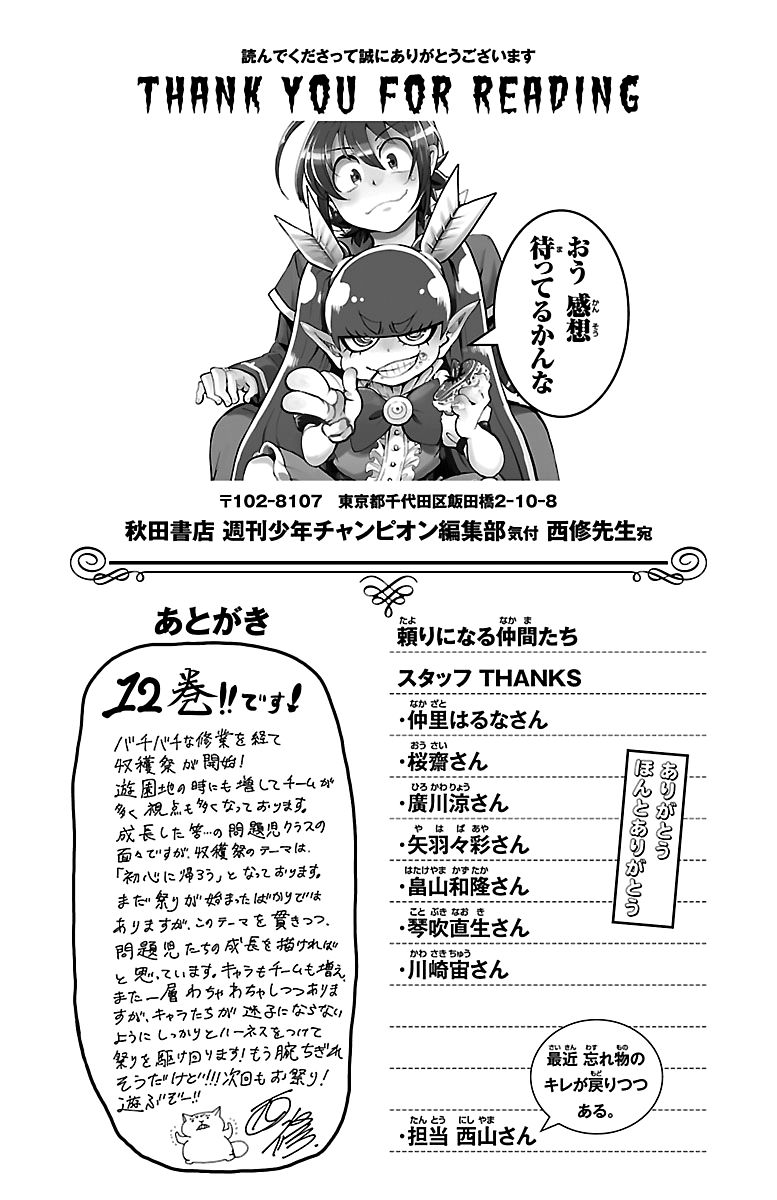 読んでくださって誠にありがとうございます
THANK YOU FOR READING
おう 感想
待ってるかんな
〒102-8107　東京都千代田区飯田橋2-10-8
秋田書店 週刊少年チャンピオン編集部気付 西修先生宛
あとがき
12巻!!です!
バチバチな修業を経て
収穫祭が開始!
遊園地の時にも増してチームが
多く視点も多くなっております。
成長した筈…の問題児クラスの
面々ですが、収穫祭のテーマは、
「初心に帰ろう」となっております。
まだ祭りが始まったばかりでは
ありますが、このテーマを貫きつつ、
問題児たちの成長を描ければ
と思っています。キャラもチームも増え、
また一層わちゃわちゃしつつありま
すが、キャラたちが迷子にならない
ようにしっかりとハーネスをつけて
祭りを駆け回ります!もう腕ちぎれ
そうだけど!!!次回もお祭り!
遊ぶぞー!!
西修.
頼りになる仲間たち
スタッフ THANKS
・仲里はるなさん
・桜齋さん
・廣川涼さん
・矢羽々彩さん
・畠山和隆さん
・琴吹直生さん
・川崎宙さん
ありがとう
ほんとありがとう
最近 忘れ物の
キレが戻りつつ
ある。
・担当 西山さん